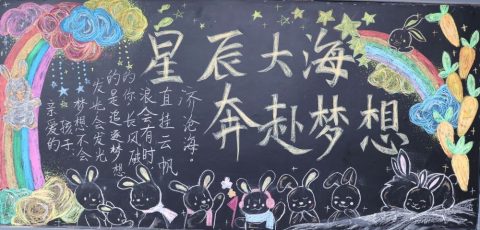 星辰大海
奔赴梦想
亲爱的
孩子,
梦想不会
发光也会发光
的是追逐梦想
的你,长风破
浪会有时
直挂云帆
济沧海。